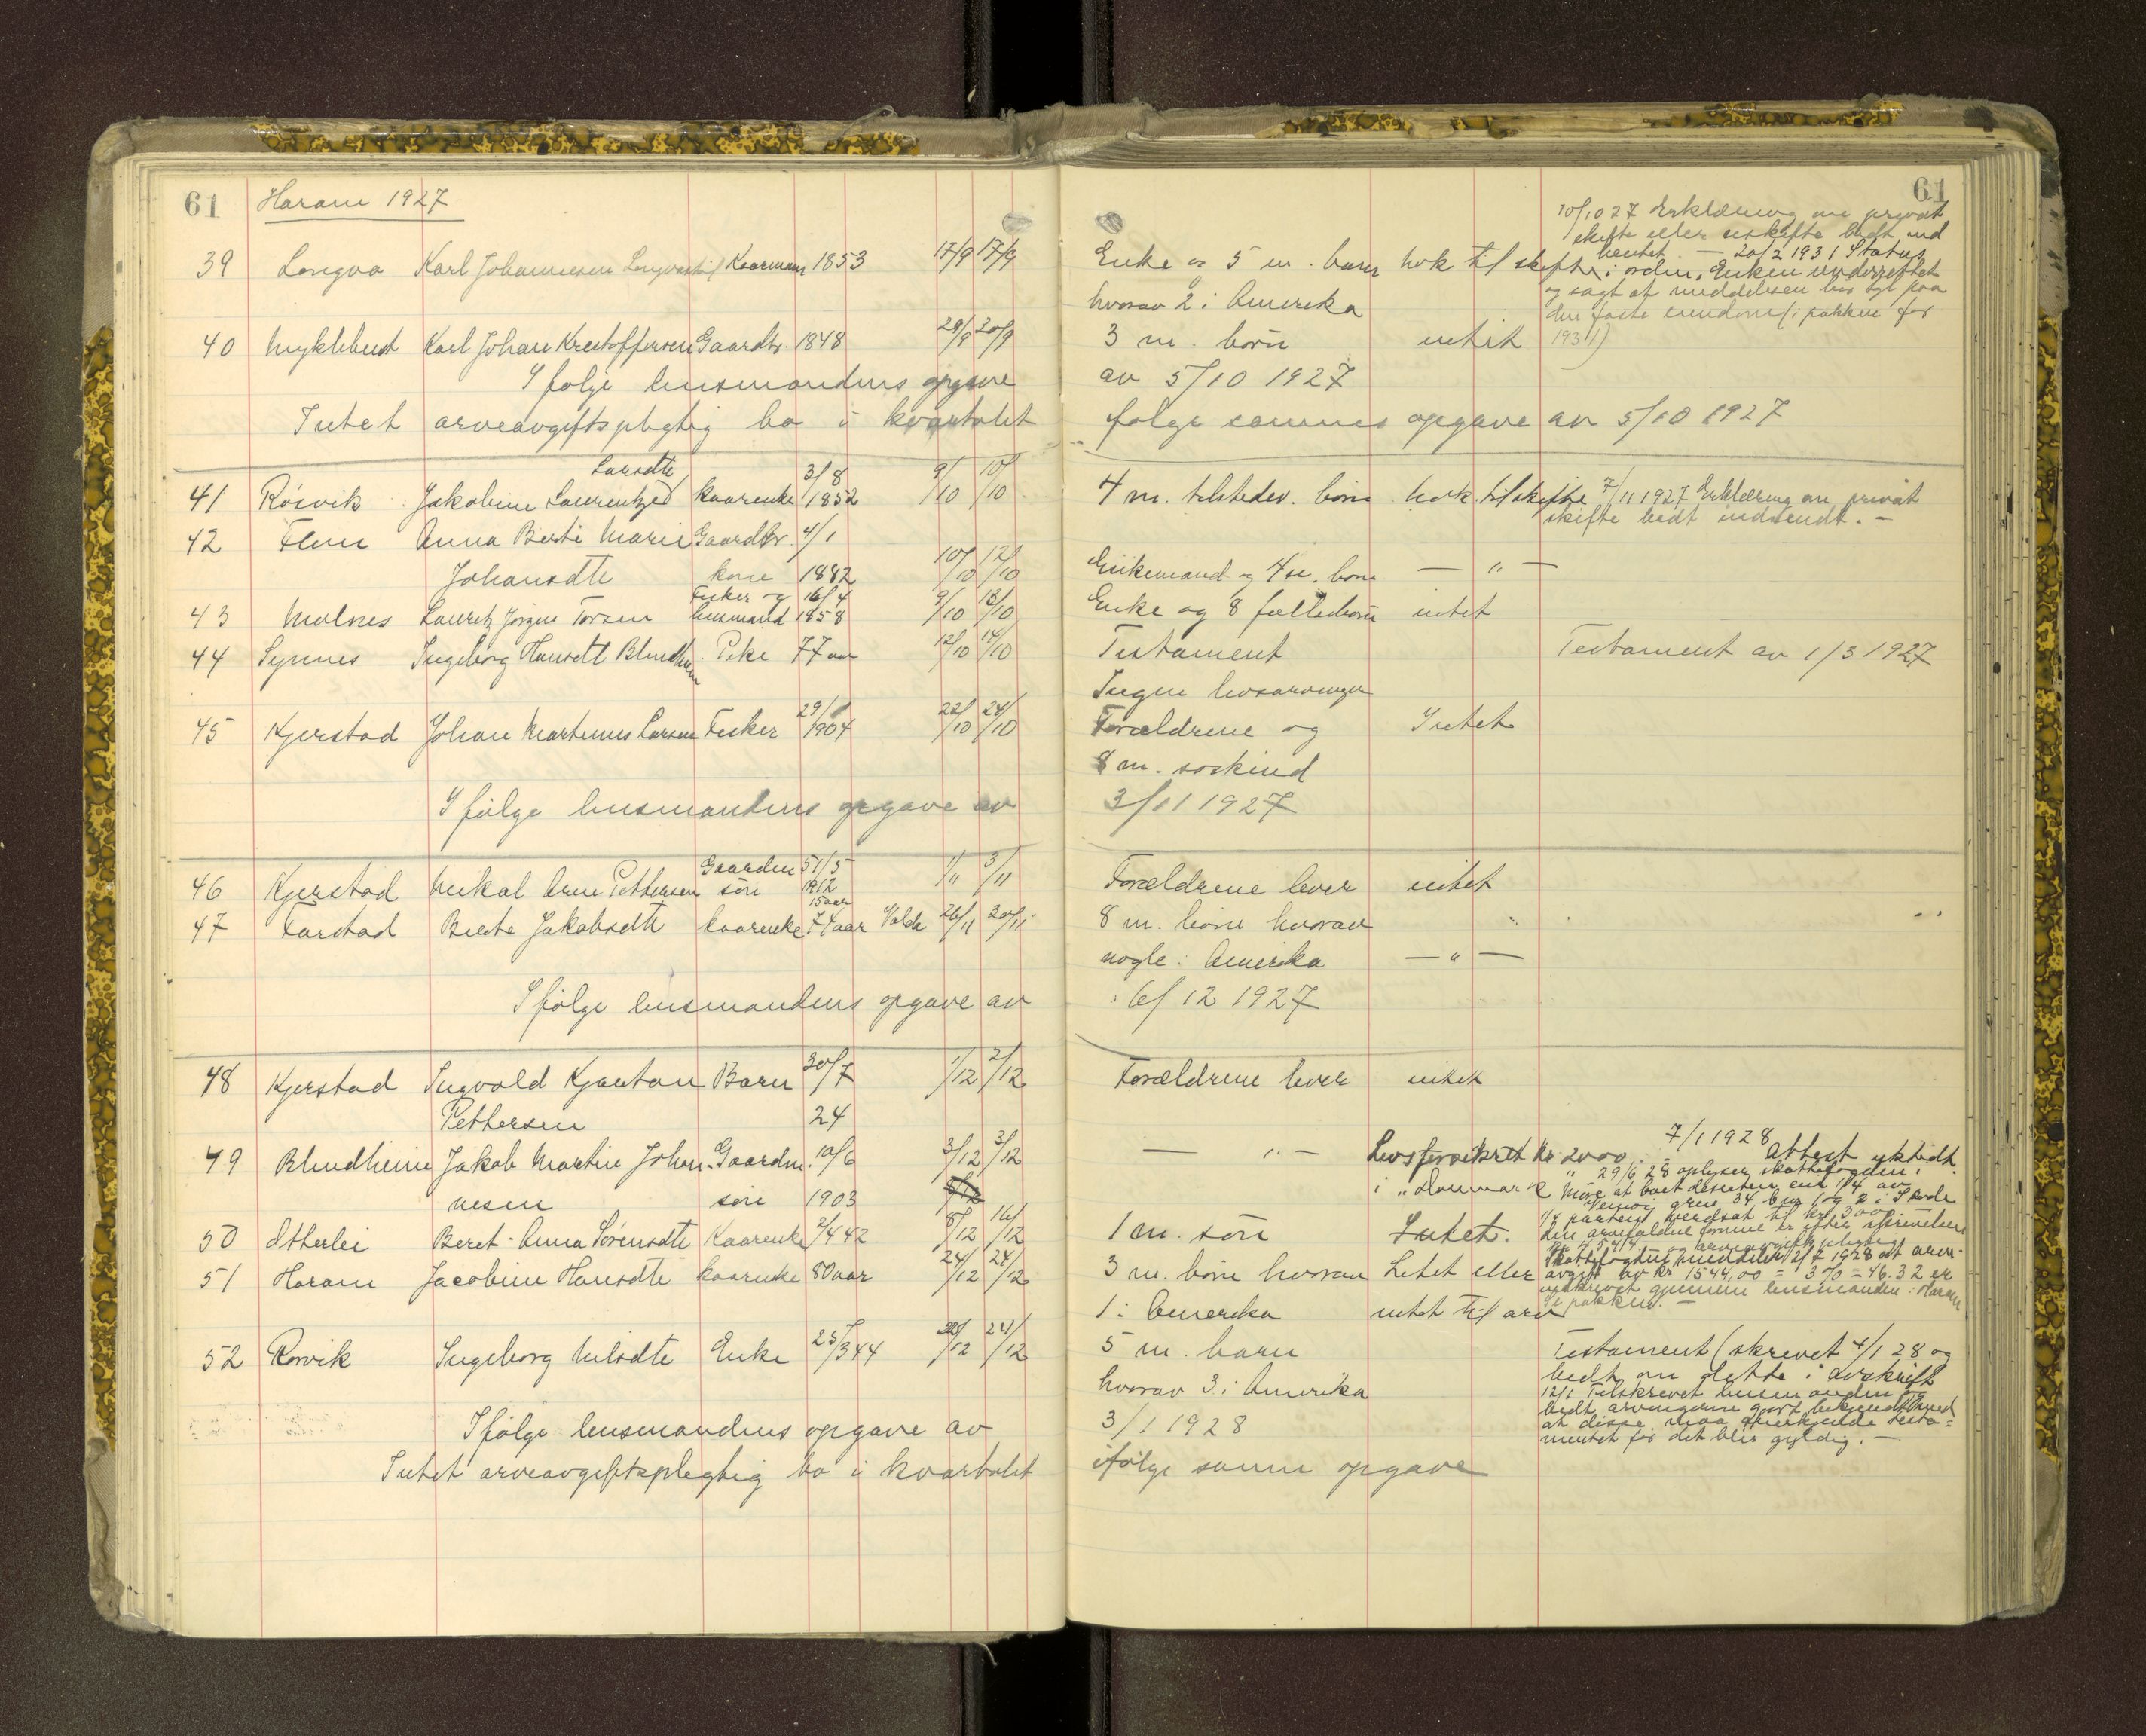 61 Haram 1927
61
10/10 27 Erklæring om privat
skifte eller uskifte bedt ind
hentet. — 20/2 1931 Status
39 Longva Karl Johannesen Longva Kaarmann 1853 17/9 17/9 Enke og 5 m. barn nok til skifte i orden. Enken underrettet
og sagt at meddelelsen blir tgl paa
hvorav 2 i Amerika
den faste eiendom (i pakken for
40 Myklebust Karl Johan Kristoffersen Gaardbr. 1848 20/9 3 m. børn intet 1931)
Ifølge lensmandens opgave av 5/10 1927
Intet arveavgiftspligtig bo i kvartalet følge sammes opgave av 5/10 1927
Larsdtr 3/8 9/ 10/
41 Røsvik Jakobine Laurentze kaarenke 1852 10 10 4 m. tilstedev. børn nok til skifte 7/11 1927 Erklæring om privat
skifte bedt indsendt. —
42 Flem Anna Berte Marie Gaardbr. 4/1
Johansdtr kone 1882 10/10 12/10 Enkemand og 4 m. børn — " —
Fisker og 16/4
43 Molnes Lauritz Jørgen Torsen husmand 1858 9/10 13/10 Enke og 8 fællesbørn intet
44 Synnes Ingeborg Hansdtr Blindheim Pike 77 aar 12/10 14/10 Testament Testament av 1/3 1927
Ingen livsarvinger
29/1
45 Kjerstad Johan Martinus Larsen Fisker 1904 22/10 24/10 Forældrene og Intet
8 m. søskend
Ifølge lensmandens opgave av 3/11 1927
Gaardm 31/5
46 Kjerstad Mikal Arne Pettersen søn 1912 1/11 3/11 Forældrene lever intet
15 aar
47 Farstad Berte Jakobsdtr kaarenke 74 aar Valde 26/11 30/11 8 m. børn hvorav "
nogle i Amerika — " —
Ifølge lensmandens opgave av 6/12 1927
48 Kjerstad Ingvald Kjartan Barn 30/7 1/12 2/12 Forældrene lever intet
Pettersen 24
7/1 1928
49 Blindheim Jakob Martin Johan- Gaardm. 10/6 3/12 3/12 — " — Livsforsikret Kr 2000. — Attest utstedt.
nesen søn 1903 i "Danmark 29/6 28 oplyser skattefogden i
Møre at boet desuten eier 1/4 av
gnr 34 bnr 1 og 2 i Skodje
1/4 parten verdsat til kr 3000
50 Otterlei Beret-Anna Sørensdtr Kaarenke 2/4 42 8/12 16/12 1 m. søn Intet. Den arvefaldne formue er efter skrivelsen
Skattefogden meddeler 12/7 1928 at arve-
51 Haram Jacobine Hansdtr kaarenke 80 aar 24/12 24/12 3 m. børn hvorav Litet eller avgift av kr 1544,00 = 3% = 46.32 er
indkrævet gjennem lensmanden i Haram
1 i Amerika intet til arv i pakken. —
52 Rørvik Ingeborg Nilsdtr Enke 25/3 44 22/12 24/12 5 m. barn Testament (skrevet 4/1 28 og
bedt om dette i avskrift
hvorav 3 i Amerika
12/1 Tilskrevet lensmanden og
bedt arvingerne gjort bekjendt med
at disse maa godkjende testa=
mentet før det blir gyldig. —
Ifølge lensmandens opgave av 3/1 1928
Intet arveavgiftspligtig bo i kvartalet ifølge samme opgave